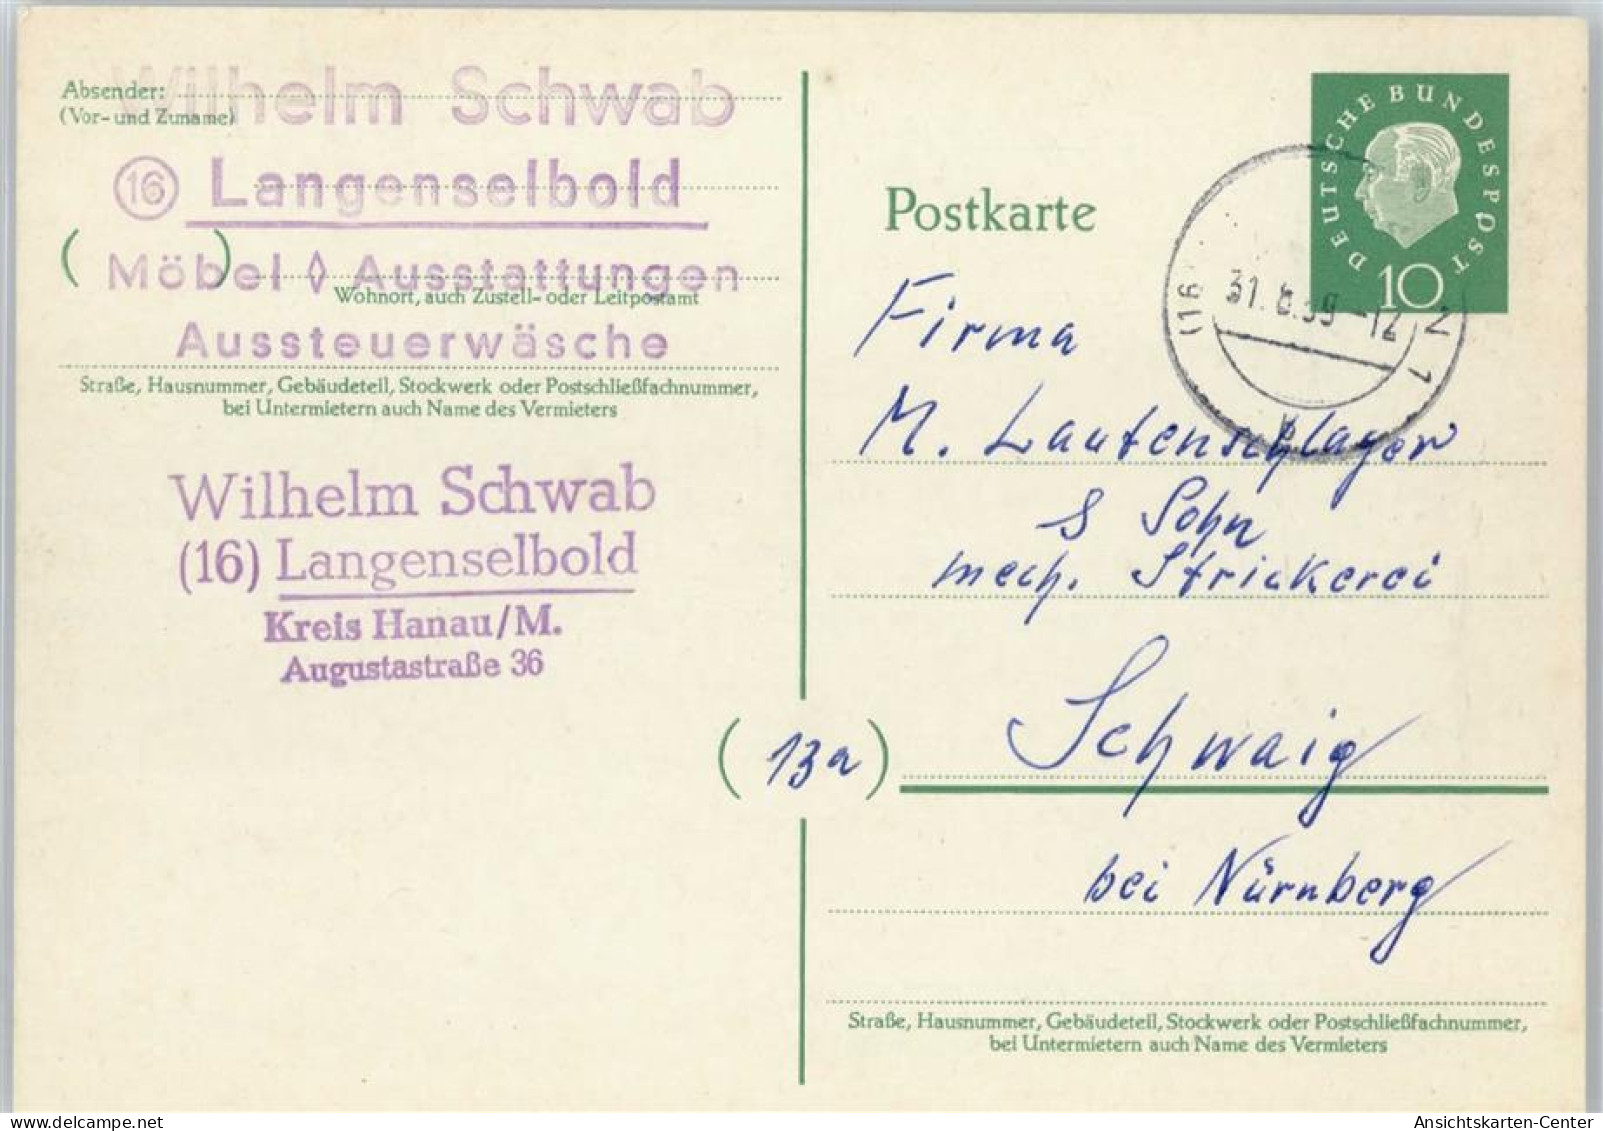 Absender:
(Vor- und Zuname)
Wilhelm Schwab
(16) Langenselbold
( )
Möbel ◊ Ausstattungen
Wohnort, auch Zustell- oder Leitpostamt
Aussteuerwäsche
Straße, Hausnummer, Gebäudeteil, Stockwerk oder Postschließfachnummer,
bei Untermietern auch Name des Vermieters
Wilhelm Schwab
(16) Langenselbold
Kreis Hanau/M.
Augustastraße 36
DEUTSCHE BUNDESPOST
10
Postkarte
(16
31. 8.59-12
Firma
M. Lautenschlager
& Sohn
mech. Strickerei
(13a) Schwaig
bei Nürnberg
Straße, Hausnummer, Gebäudeteil, Stockwerk oder Postschließfachnummer,
bei Untermietern auch Name des Vermieters
Ansichtskarten-Center